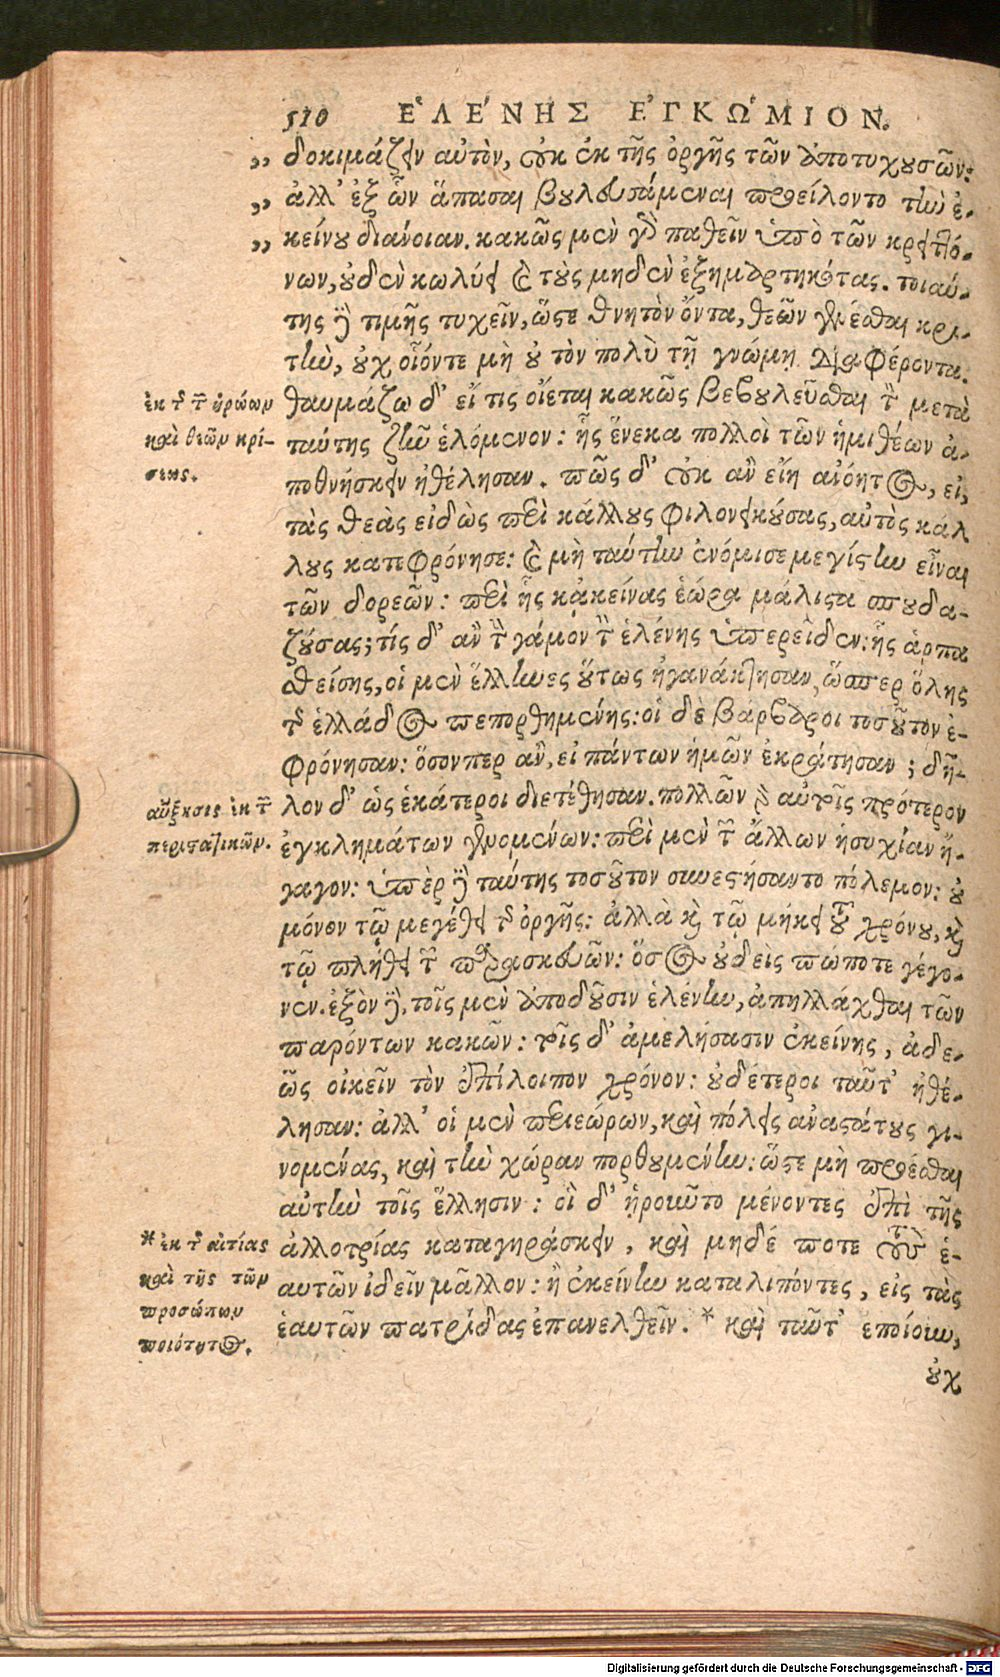 510 ἙΛΈΝΗΣ ἘΓΚΏΜΙΟΝ.
„ δοκιμάζειν αὐτὸν, οὐκ ἐκ τῆς ὀργῆς τῶν ἀποτυχουσῶν:
„ ἀλλ' ἐξ ὧν ἅπασαι βουλευσάμεναι προείλοντο τὴν ἐ-
„ κείνου διάνοιαν. κακῶς μὲν γὸ παθεῖν ὑπὸ τῶν κρειττό-
νων, οὐδὲν κωλύει καὶ τοὺς μηδὲν ἐξημαρτηκότας. τοιαύ-
της δὲ τιμῆς τυχεῖν, ὥστε θνητὸν ὄντα, θεῶν γενέσθαι κρι-
τὴν, οὐχ οἷόντε μὴ οὐ τὸν πολὺ τῇ γνώμῃ διαφέροντα.
ἐκ τῆς τῶν ἡρώων
καὶ θεῶν κρί-
σεως.
θαυμάζω δ' εἴ τις οἴεται κακῶς βεβουλεῦσθαι τὸν μετὰ
ταύτης ζῆν ἑλόμενον: ἧς ἕνεκα πολλοὶ τῶν ἡμιθέων ἀ-
ποθνήσκειν ἠθέλησαν. πῶς δ' οὐκ ἂν εἴη ἀνόητος, εἰ,
τὰς θεὰς εἰδὼς περὶ κάλλους φιλονεικούσας, αὐτὸς κάλ
λους κατεφρόνησε: καὶ μὴ ταύτην ἐνόμισε μεγίστην εἶναι
τῶν δορεῶν: περὶ ἧς κἀκείνας ἑώρα μάλιστα σπουδα-
ζούσας; τίς δ' ἂν τὸν γάμον τὸν ἑλένης ὑπερεῖδεν: ἧς ἁρπα
σθείσης, οἱ μὲν ἕλληνες οὕτως ἠγανάκτησαν, ὥσπερ ὅλης
τῆς ἑλλάδος πεπορθημένης: οἱ δὲ βάρβαροι τοσοῦτον ἐ-
φρόνησαν: ὅσονπερ ἂν, εἰ πάντων ἡμῶν ἐκράτησαν; δῆ-
αὔξησις ἐκ τῶν
περιστατικῶν.
λον δ' ὡς ἑκάτεροι διετέθησαν. πολλῶν γὰρ αὐτοῖς πρότερον
ἐγκλημάτων γενομένων: περὶ μὲν τῶν ἄλλων ἡσυχίαν ἤ-
γαγον: ὑπὲρ δὲ ταύτης τοσοῦτον συνεστήσαντο πόλεμον: οὐ
μόνον τῷ μεγέθει τῆς ὀργῆς: ἀλλὰ καὶ τῷ μήκει τοῦ χρόνου, καὶ
τῷ πλήθει τῶν παρασκευῶν: ὅσος οὐδεὶς πώποτε γέγο-
νεν. ἐξὸν δὲ, τοῖς μὲν ἀποδοῦσιν ἑλένην, ἀπηλλάχθαι τῶν
παρόντων κακῶν: τοῖς δ' ἀμελήσασιν ἐκείνης, ἀδε-
ῶς οἰκεῖν τὸν ἐπίλοιπον χρόνον: οὐδέτεροι ταῦτ' ἠθέ-
λησαν: ἀλλ' οἱ μὲν περιεώρων, καὶ πόλεις ἀναστάτους γι-
νομένας, καὶ τὴν χώραν πορθουμένην: ὥστε μὴ προέσθαι
αὐτὴν τοῖς ἕλλησιν: οἱ δ' ᾑροῦντο μένοντες ἐπὶ τῆς
* ἐκ τῆς αἰτίας
καὶ τῆς τῶν
προσώπων
ποιότητος.
ἀλλοτρίας καταγηράσκειν, καὶ μηδέ ποτε τοὺς ἑ-
αυτῶν ἰδεῖν μᾶλλον: ἢ ἐκείνην καταλιπόντες, εἰς τὰς
ἑαυτῶν πατρίδας ἐπανελθεῖν. * καὶ ταῦτ' ἐποίουν,
οὐχ
Digitalisierung gefördert durch die Deutsche Forschungsgemeinschaft - DFG